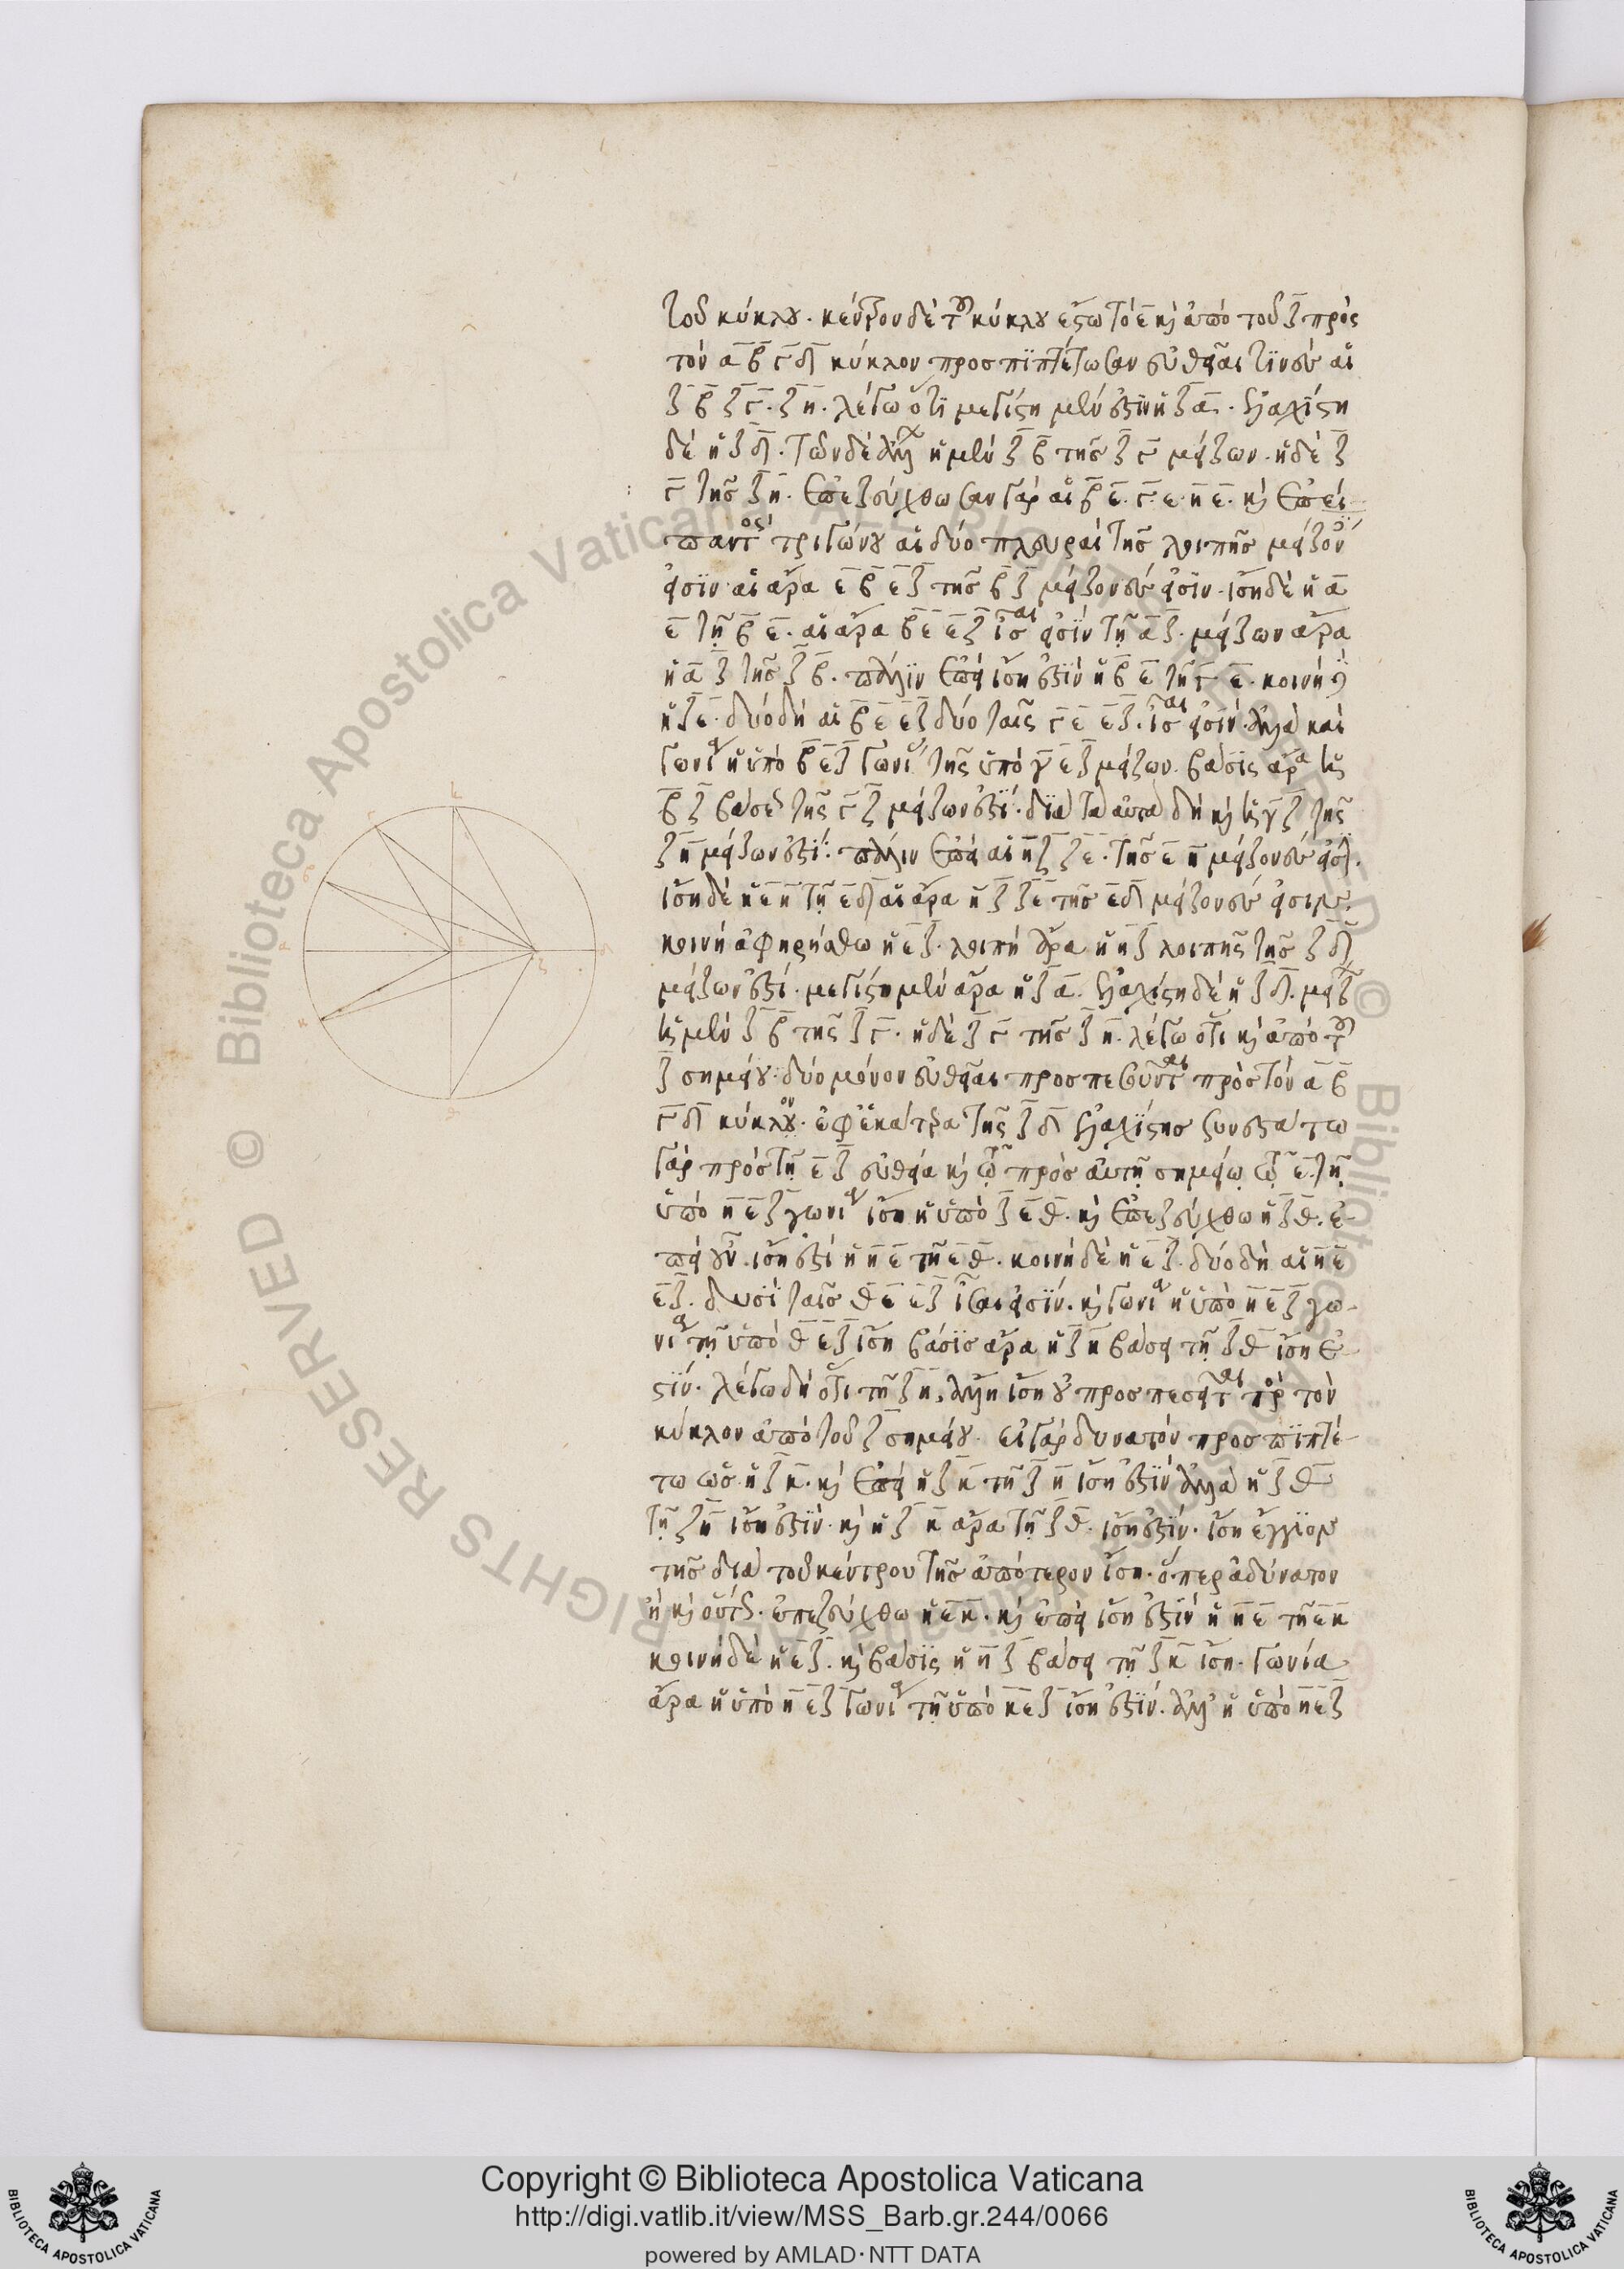 τοῦ κύκλου. κέντρον δὲ τοῦ κύκλου ἔστω τὸ ε̅ κὶ ἀπὸ τοῦ ζ̅ πρὸς
τὸν α̅ β̅ γ̅ δ̅ κύκλον προσπϊπτέτωσαν εὐθεῖαι τϊνὲσ αἱ
ζ̅ β̅ ζ̅ γ̅. ζ̅ η̅. λέγω ὅτϊ μεγίστη μέν ἐστϊν ἡ ζ̅ α̅. ἐλαχίστη
δὲ ἡ ζ̅ δ̅. τῶν δὲ ἄλλων ἡ μὲν ζ̅ β̅ τῆσ ζ̅ γ̅ μείζων. ἡ δὲ ζ̅
γ̅ τῆσ ζ̅ η̅. ἐπεζεύχθωσαν γὰρ αἱ β̅ ε̅. γ̅ ε̅. η̅ ε̅. κὶ ἐπεὶ
παντὸς τριγώνου αἱ δύο πλευραὶ τῆσ λοιπῆσ μείζονές
εἰσϊν. αἱ ἄρα ε̅ β̅ ε̅ ζ̅ τῆσ β̅ ζ̅ μείζονεσ εἰσϊν. ἴση δὲ ἡ α̅
ε̅ τῇ β̅ ε̅. αἱ ἄρα β̅ ε̅ ε̅ ζ̅ ἴσαι εἰσϊν τῇ α̅ ζ̅. μείζων ἄρα
ἡ α̅ ζ̅ τῆσ ζ̅ β̅. πάλϊν ἐπεὶ ἴση ἐστϊν ἡ β̅ ε̅ τῇ γ̅ ε̅. κοινὴ δὲ
ἡ ζ̅ ε̅. δύο δὴ αἱ β̅ ε̅ ε̅ ζ̅ δύο ταῖς γ̅ ε̅ ε̅ ζ̅. ἴσαι εἰσϊν. ἀλλὰ καὶ
γωνία ἡ ὑπὸ β̅ ε̅ ζ̅ γωνίας τῆς ὑπὸ γ̅ ε̅ ζ̅ μείζων. βάσϊς ἄρα ἡ
β̅ ζ̅ βάσεως τῆς γ̅ ζ̅ μείζων ἐστϊ. δϊὰ τὰ αὐτὰ δὴ κὶ ἡ γ̅ ζ̅ τῆς
ζ̅ η̅ μείζων ἐστϊ. πάλϊν ἐπεὶ αἱ η̅ ζ̅ ζ̅ ε̅. τῆσ ε̅ η̅ μείζονεσ εἰσϊ.
ἴση δὲ ἡ ε̅ η̅ τῇ ε̅ δ̅ αἱ ἄρα η̅ ζ̅ ζ̅ ε̅ τῆσ ε̅ δ̅ μείζονεσ εἰσιν.
κοινὴ ἀφηρήσθω ἡ ε̅ ζ̅. λοιπὴ ἄρα ἡ η̅ ζ̅ λοιπῆς τῆσ ζ̅ δ̅
μείζων ἐστί. μεγίστη μὲν ἄρα ἡ ζ̅ α̅. ἐλαχίστη δὲ ἡ ζ̅ δ̅. μείζων
ἡ μὲν ζ̅ β̅ τῆς ζ̅ γ̅. ἡ δὲ ζ̅ γ̅ τῆσ ζ̅ η̅. λέγω ὅτι κὶ ἀπὸ τοῦ
ζ̅ σημείου. δύο μόνον εὐθεῖαι προσπεσοῦνται πρὸσ τὸν α̅ β̅
γ̅ δ̅ κύκλον. ἐφ ἑκάτερα τῆς ζ̅ δ̅ ἐλαχϊστησ συνεστάτω
γὰρ πρὸσ τῇ ε̅ ζ̅ εὐθεία κὶ τῷ πρὸσ αὐτῇ σημείῳ τῷ ε̅. τῇ
ὑπὸ η̅ ε̅ ζ̅ γωνία ἴση ἡ ὑπὸ ζ̅ ε̅ θ̅. κὶ ἐπεζεύχθω ἡ ζ̅ θ̅. ἐ-
πεὶ οὖν. ἴση ἐστὶ ἡ η̅ ε̅ τῇ ε̅ θ̅. κοινὴ δὲ ἡ ε̅ ζ̅. δύο δὴ αἱ η̅ ε̅
ε̅ ζ̅. δυσϊ ταῖσ θ̅ ε̅ ε̅ ζ̅ ἴσαι εἰσϊν. κὶ γωνία ἡ ὑπὸ η̅ ε̅ ζ̅ γω-
νία τῇ ὑπὸ θ̅ ε̅ ζ̅ ἴση βάσϊσ ἄρα ἡ ζ̅ η̅ βάσει τῇ ζ̅ θ̅ ἴση ἐ-
στϊν. λέγω δὴ ὅτι τῇ ζ̅ η̅. ἄλλη ἴση οὐ προσπεσεῖται πρὸς τὸν
κύκλον ἀπὸ τοῦ ζ̅ σημείου. εἰ γὰρ δυνατὸν προσπϊπτέ-
τω ὡσ ἡ ζ̅ κ̅. κὶ ἐπεὶ ἡ ζ̅ κ̅ τῇ ζ̅ η̅ ἴση ἐστϊν ἀλλὰ ἡ ζ̅ θ̅
τῇ ζ̅ η̅ ἴση ἐστϊν. κὶ ἡ ζ̅ κ̅ ἄρα τῇ ζ̅ θ̅. ἴση ἐστϊν. ἴση ἔγγϊον
τῆσ διὰ τοῦ κέντρου τῆσ ἀπότερον ἴση. ὅπερ ἀδύνατον
ἢ κὶ οὕτως. ἐπεζεύχθω ἡ ε̅ κ̅. κὶ ἐπεὶ ἴση ἐστϊν ἡ η̅ ε̅ τῇ ε̅ κ̅
κοινὴ δὲ ἡ ε̅ ζ̅. κὶ βάσϊς ἡ η̅ ζ̅ βάσει τῇ ζ̅ κ̅ ἴση. γωνία
ἄρα ἡ ὑπὸ η̅ ε̅ ζ̅ γωνία τῇ ὑπὸ κ̅ ε̅ ζ̅ ἴση ἐστϊν. ἀλλ ἡ ὑπὸ η̅ ε̅ ζ̅
© Biblioteca Apostolica Vaticana ALL RIGHTS RESERVED
Copyright © Biblioteca Apostolica Vaticana
http://digi.vatlib.it/view/MSS_Barb.gr.244/0066
powered by AMLAD·NTT DATA
BIBLIOTECA APOSTOLICA VATICANA
BIBLIOTECA APOSTOLICA VATICANA